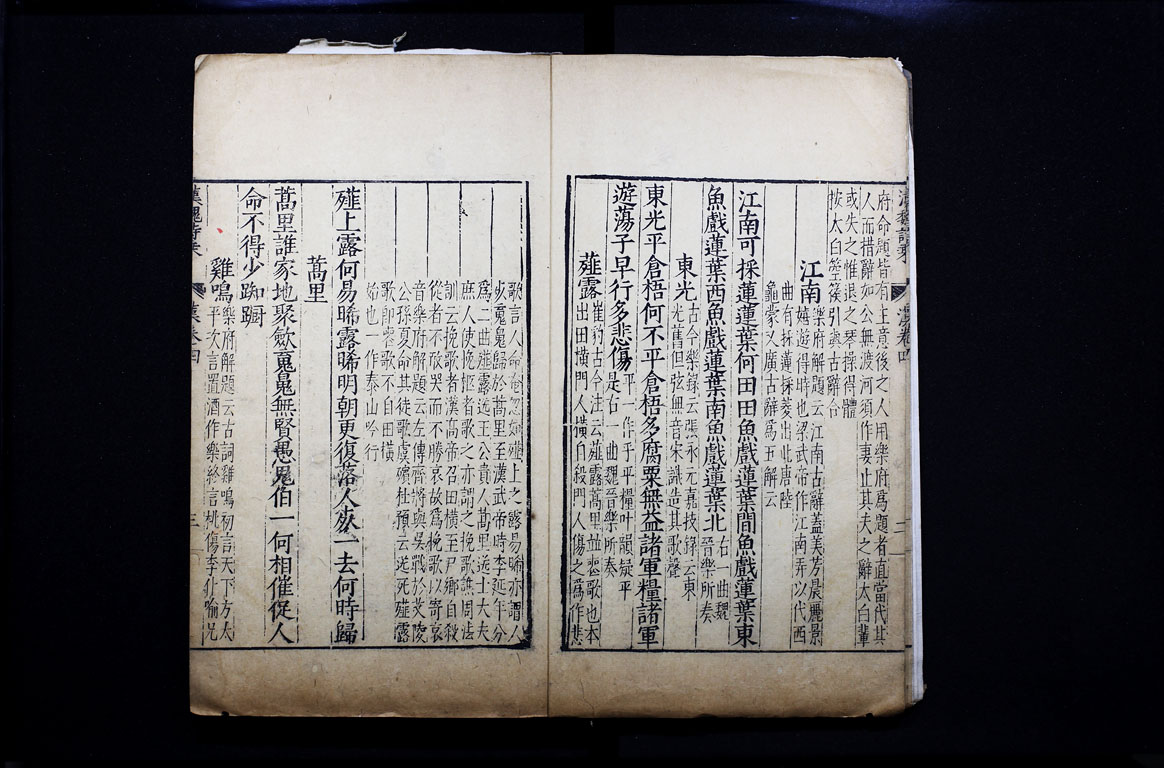 府命題皆有主意後之人用樂府為題者直當代其
人而措辭如公無渡河須作妻止其夫之辭太白輩
或失之惟退之琴操得體
按太白箜篌引與古辭合
江南
樂府解題云江南古辭蓋美芳晨麗景
嬉遊得時也梁武帝作江南弄以代西
曲有採蓮採菱出此唐陸
龜蒙又廣古辭為五解云
江南可採蓮蓮葉何田田魚戲蓮葉間魚戲蓮葉東
魚戲蓮葉西魚戲蓮葉南魚戲蓮葉北
右一曲魏
晉樂所奏
東光
古今樂錄云張永元嘉技錄云東
光舊但弦無音宋識造其歌聲
東光平倉梧何不平倉梧多腐粟無益諸軍糧諸軍
遊蕩子早行多悲傷
平一作乎平糧叶韻疑平
是右一曲魏晉樂所奏
薤露
崔豹古今注云薤露蒿里並喪歌也本
出田橫門人橫自殺門人傷之為作悲
歌言人命奄忽如薤上之露易晞亦謂人
死魂魄歸於蒿里至漢武帝時李延年分
為二曲薤露送王公貴人蒿里送士大夫
庶人使挽柩者歌之亦謂之挽歌譙周法
訓云挽歌者漢高帝召田橫至尸鄉自殺
從者不敢哭而不勝哀故為挽歌以寄哀
音樂府解題云左傳齊將與吳戰於艾陵
公孫夏命其徒歌虞殯杜預云送死薤露
歌即喪歌不自田橫
始也一作泰山吟行
薤上露何易晞露晞明朝更復落人死一去何時歸
蒿里
蒿里誰家地聚斂䰟魄無賢愚鬼伯一何相催促人
命不得少踟躕
雞鳴
樂府解題云古詞雞鳴初言天下方太
平次言置酒作樂終言桃傷李仆喻兄
漢魏詩乘
漢卷四
三
漢魏詩乘
漢卷四
二